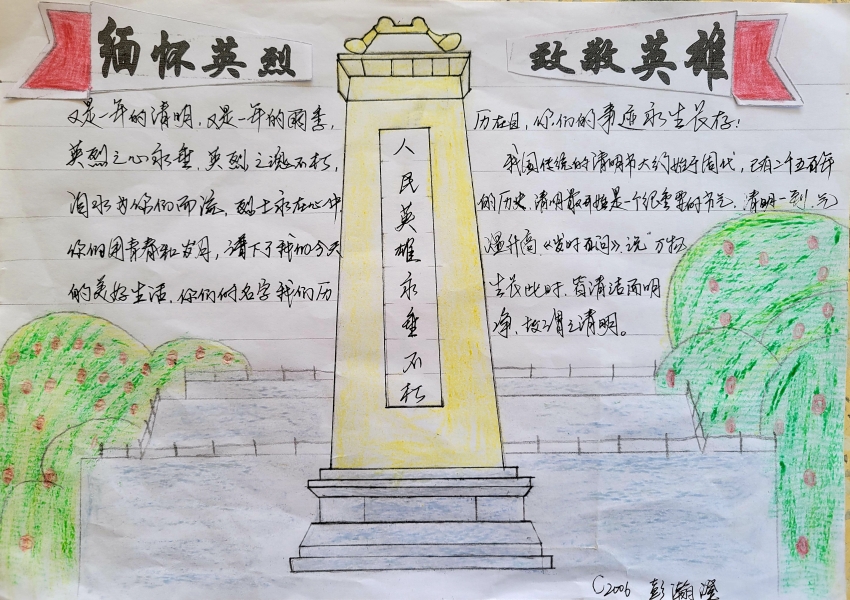 缅怀英烈
致敬英雄
又是一年的清明，又是一年的雨季，
英烈之心永垂，英烈之魂不朽，
泪水为你们而流，烈士永在心中
你们用青春和岁月，请下了我们今天
的美好生活，你们的名字我们历
人民英雄永垂不朽
历在目，你们的事迹永生长存！
我国传统的清明节大约始于周代，已有二千五百年
的历史，清明最开始是一个很重要的节气，清明一到，气
温升高，《岁时百问》说"万物
生长此时，皆清洁而明
净，故谓之清明。
C2006 彭瀚